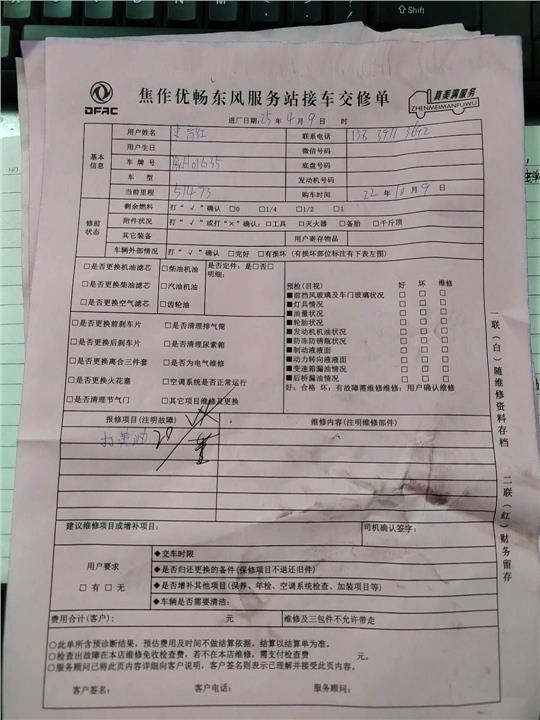 Shift
DFAC
焦作优畅东风服务站接车交修单
真美满服务
ZHENMEIMANFUWU
进厂日期: 25 年 4 月 9 日 时
基本信息
用户姓名
联系电话 138 3911 3692
用户生日
微信号码
车牌号
底盘号
车型
发动机号
当前里程 51473
购车时间 22 年 10 月 9 日
修前状态
剩余燃料 打“√”确认 □0 □1/4 □1/2 □1
附件状况 打“√”或打“×”确认: □工具 □灭火器 □备胎 □千斤顶
其它装备
用户寄存物品
车辆外部情况 打“√”确认 □完好 □有损坏 (有损坏部位标注有下表左图)
□是否更换机油滤芯 □柴油机油 是否定件: 是□否□
□是否更换柴油滤芯 □汽油机油 明细:
□是否更换空气滤芯 □齿轮油
□是否更换前刹车片 □是否清理排气筒
□是否更换后刹车片 □是否清理尿素箱
□是否更换离合三件套 □是否为电气维修
□是否更换火花塞 □空调系统是否正常运行
□是否清理节气门 □其它项目维修及更换
预检(目视) 好 坏 维修
■前挡风玻璃及车门玻璃状况 □ □ □
■灯具情况 □ □ □
■油量状况 □ □ □
■轮胎状况 □ □ □
■发动机机油状况 □ □ □
■防冻防锈瓶状况 □ □ □
■制动液液面 □ □ □
■动力转向液液面 □ □ □
■变速箱漏油情况 □ □ □
■后桥漏油情况 □ □ □
好: 合格 坏: 有故障需维修维修: 用户确认维修
报修项目(注明故障)
维修内容(注明维修部件)
打黄油
建议维修项目或增补项目:
司机确认签字:
用户要求
□有□无
◆交车时限
◆是否归还更换的备件(保修项目不退还旧件)
◆是否增补其他项目(保养、年检、空调系统检查、加装项目等)
◆车辆是否需要清洁:
费用合计(客户): 元
维修及三包件不允许带走
○此单所含预诊断结果, 预估费用及时间不做结算依据, 结算以结算单为准。
○检查出故障在本店维修免收检查费, 若不在本店维修, 需支付检查费 元。
○服务顾问已将此页内容详细向客户说明, 客户签名则表示已理解并接受此页内容。
客户签名: 客户电话: 服务顾问:
一联(白)随维修资料存档
二联(红)财务留存